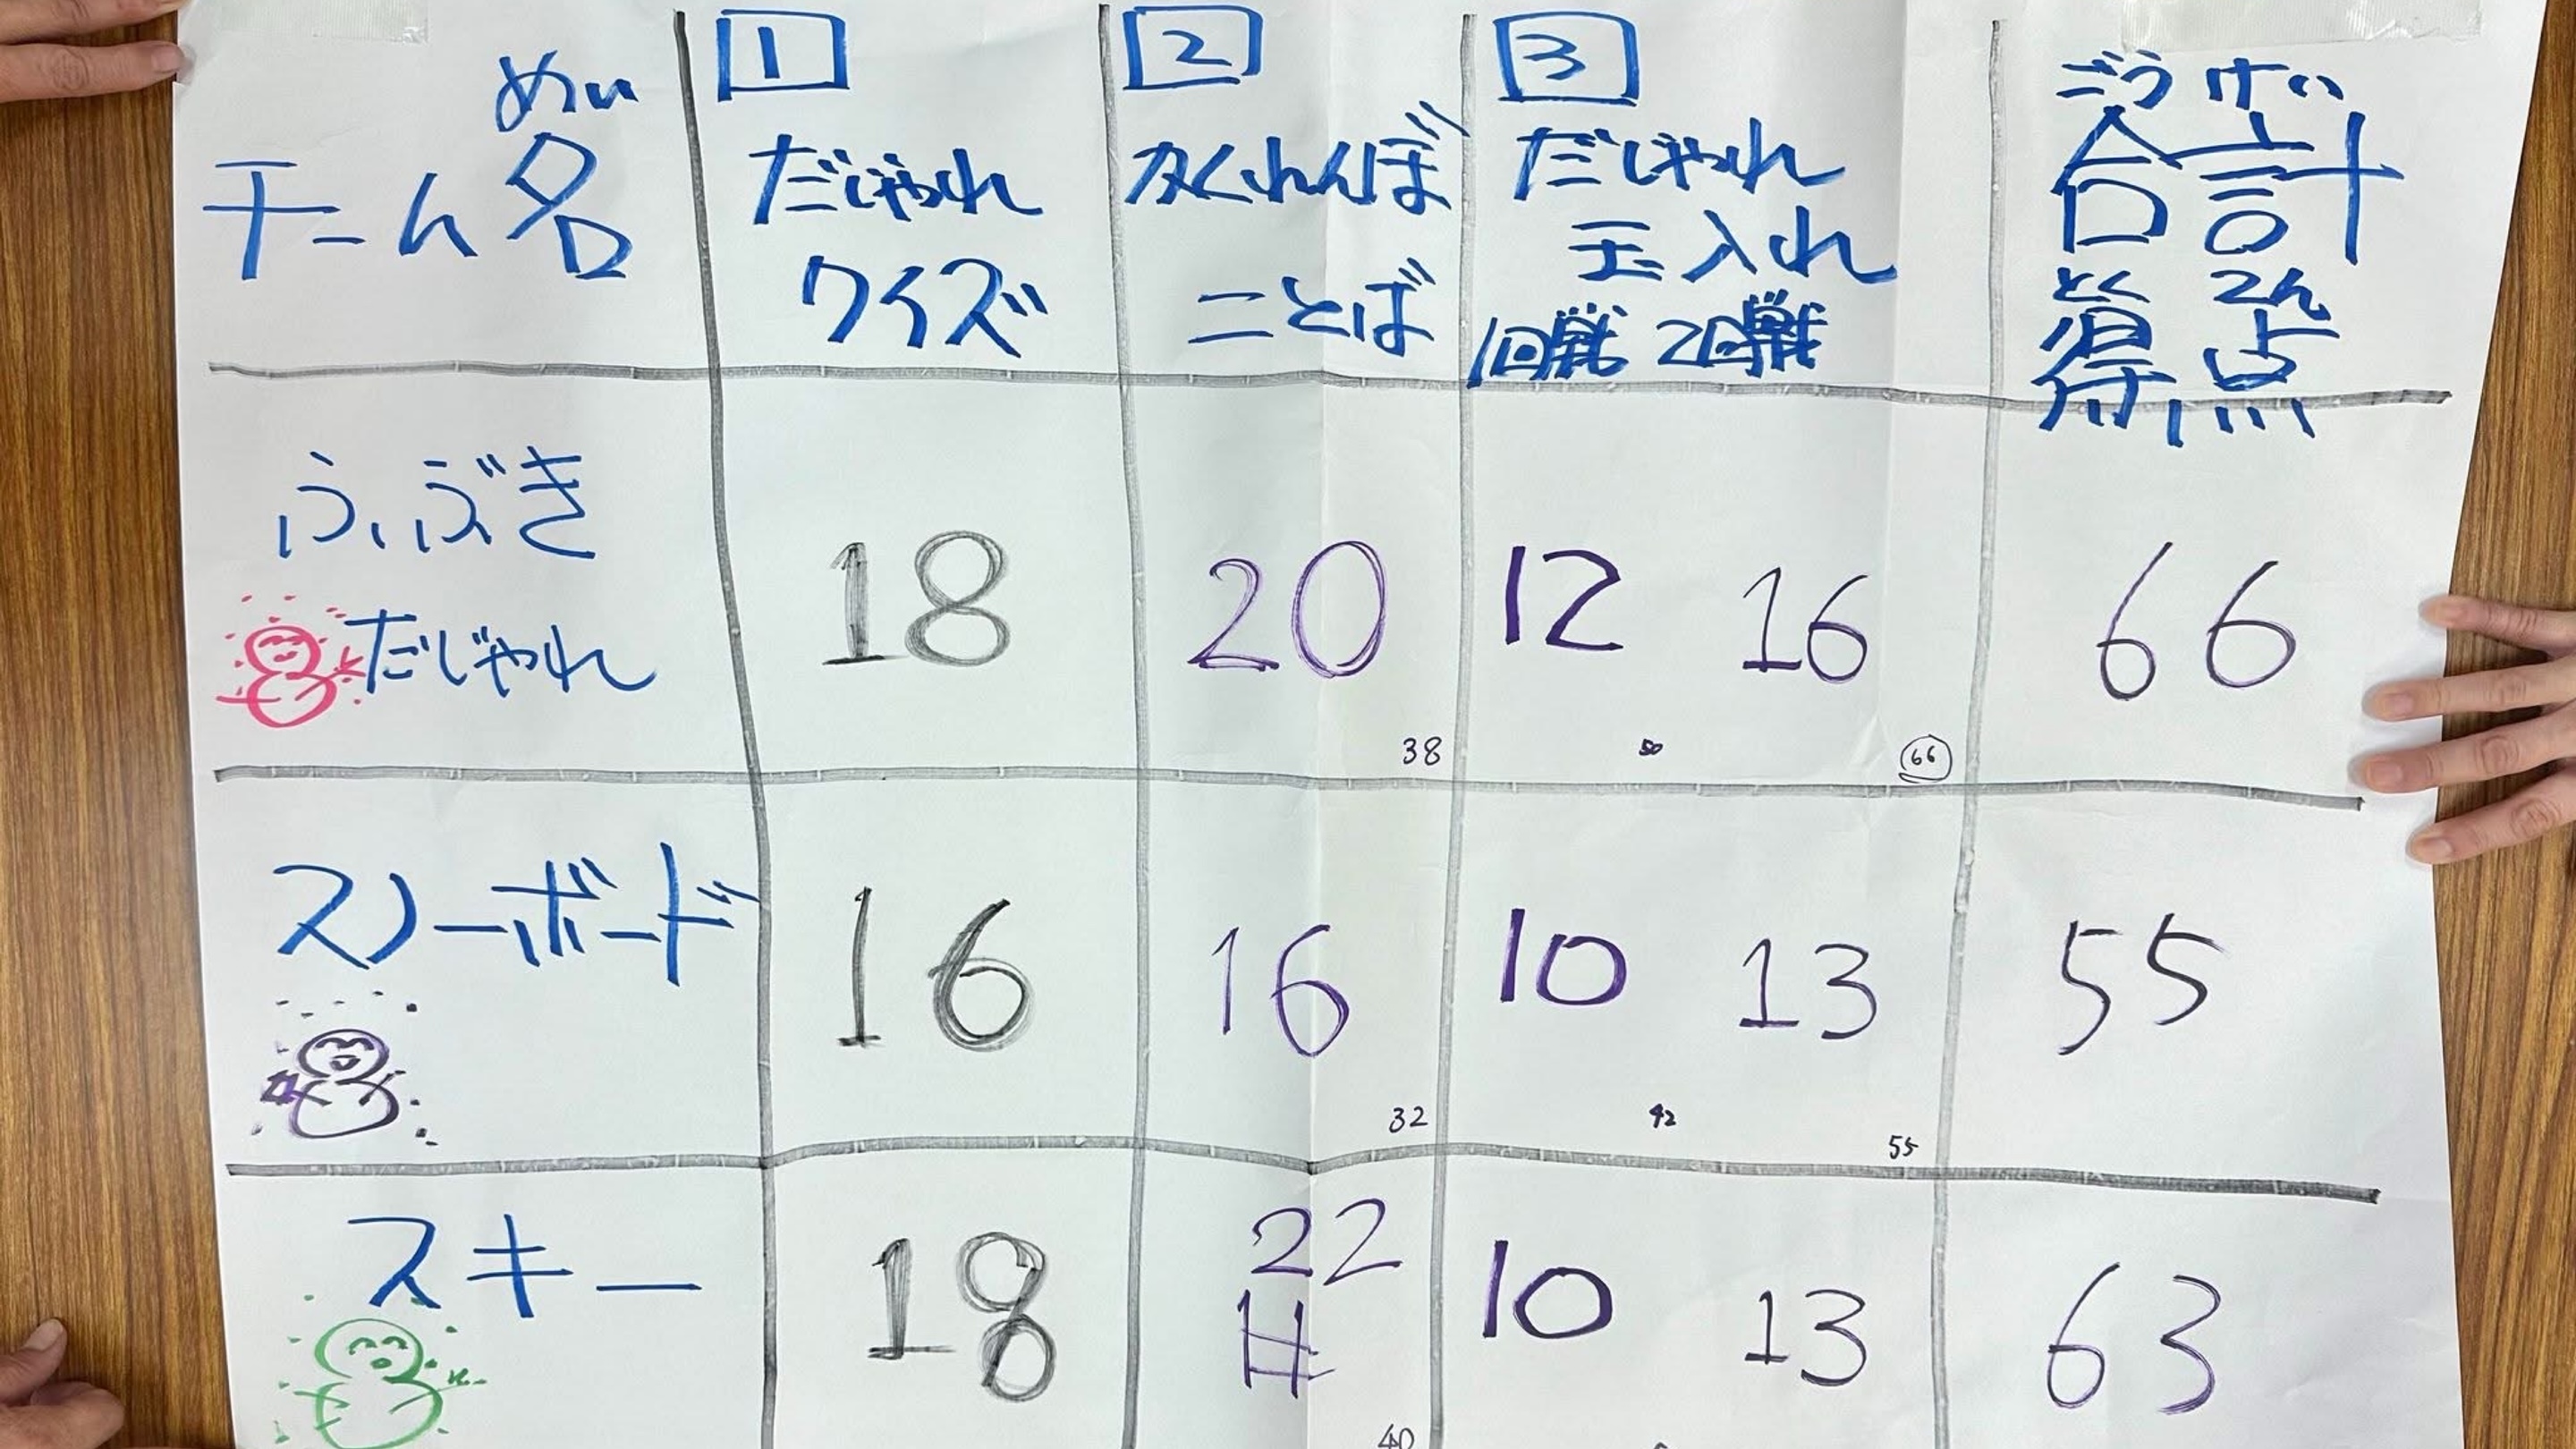 チーム名
めい
1
だじゃれ
クイズ
2
かくれんぼ
ことば
3
だじゃれ
玉入れ
1回戦 2回戦
ごうけい
合計
とくてん
得点
ふぶき
だじゃれ
18
20
38
12
50
16
66
66
スノーボード
16
16
32
10
42
13
55
55
スキー
18
22
11
40
10
13
63